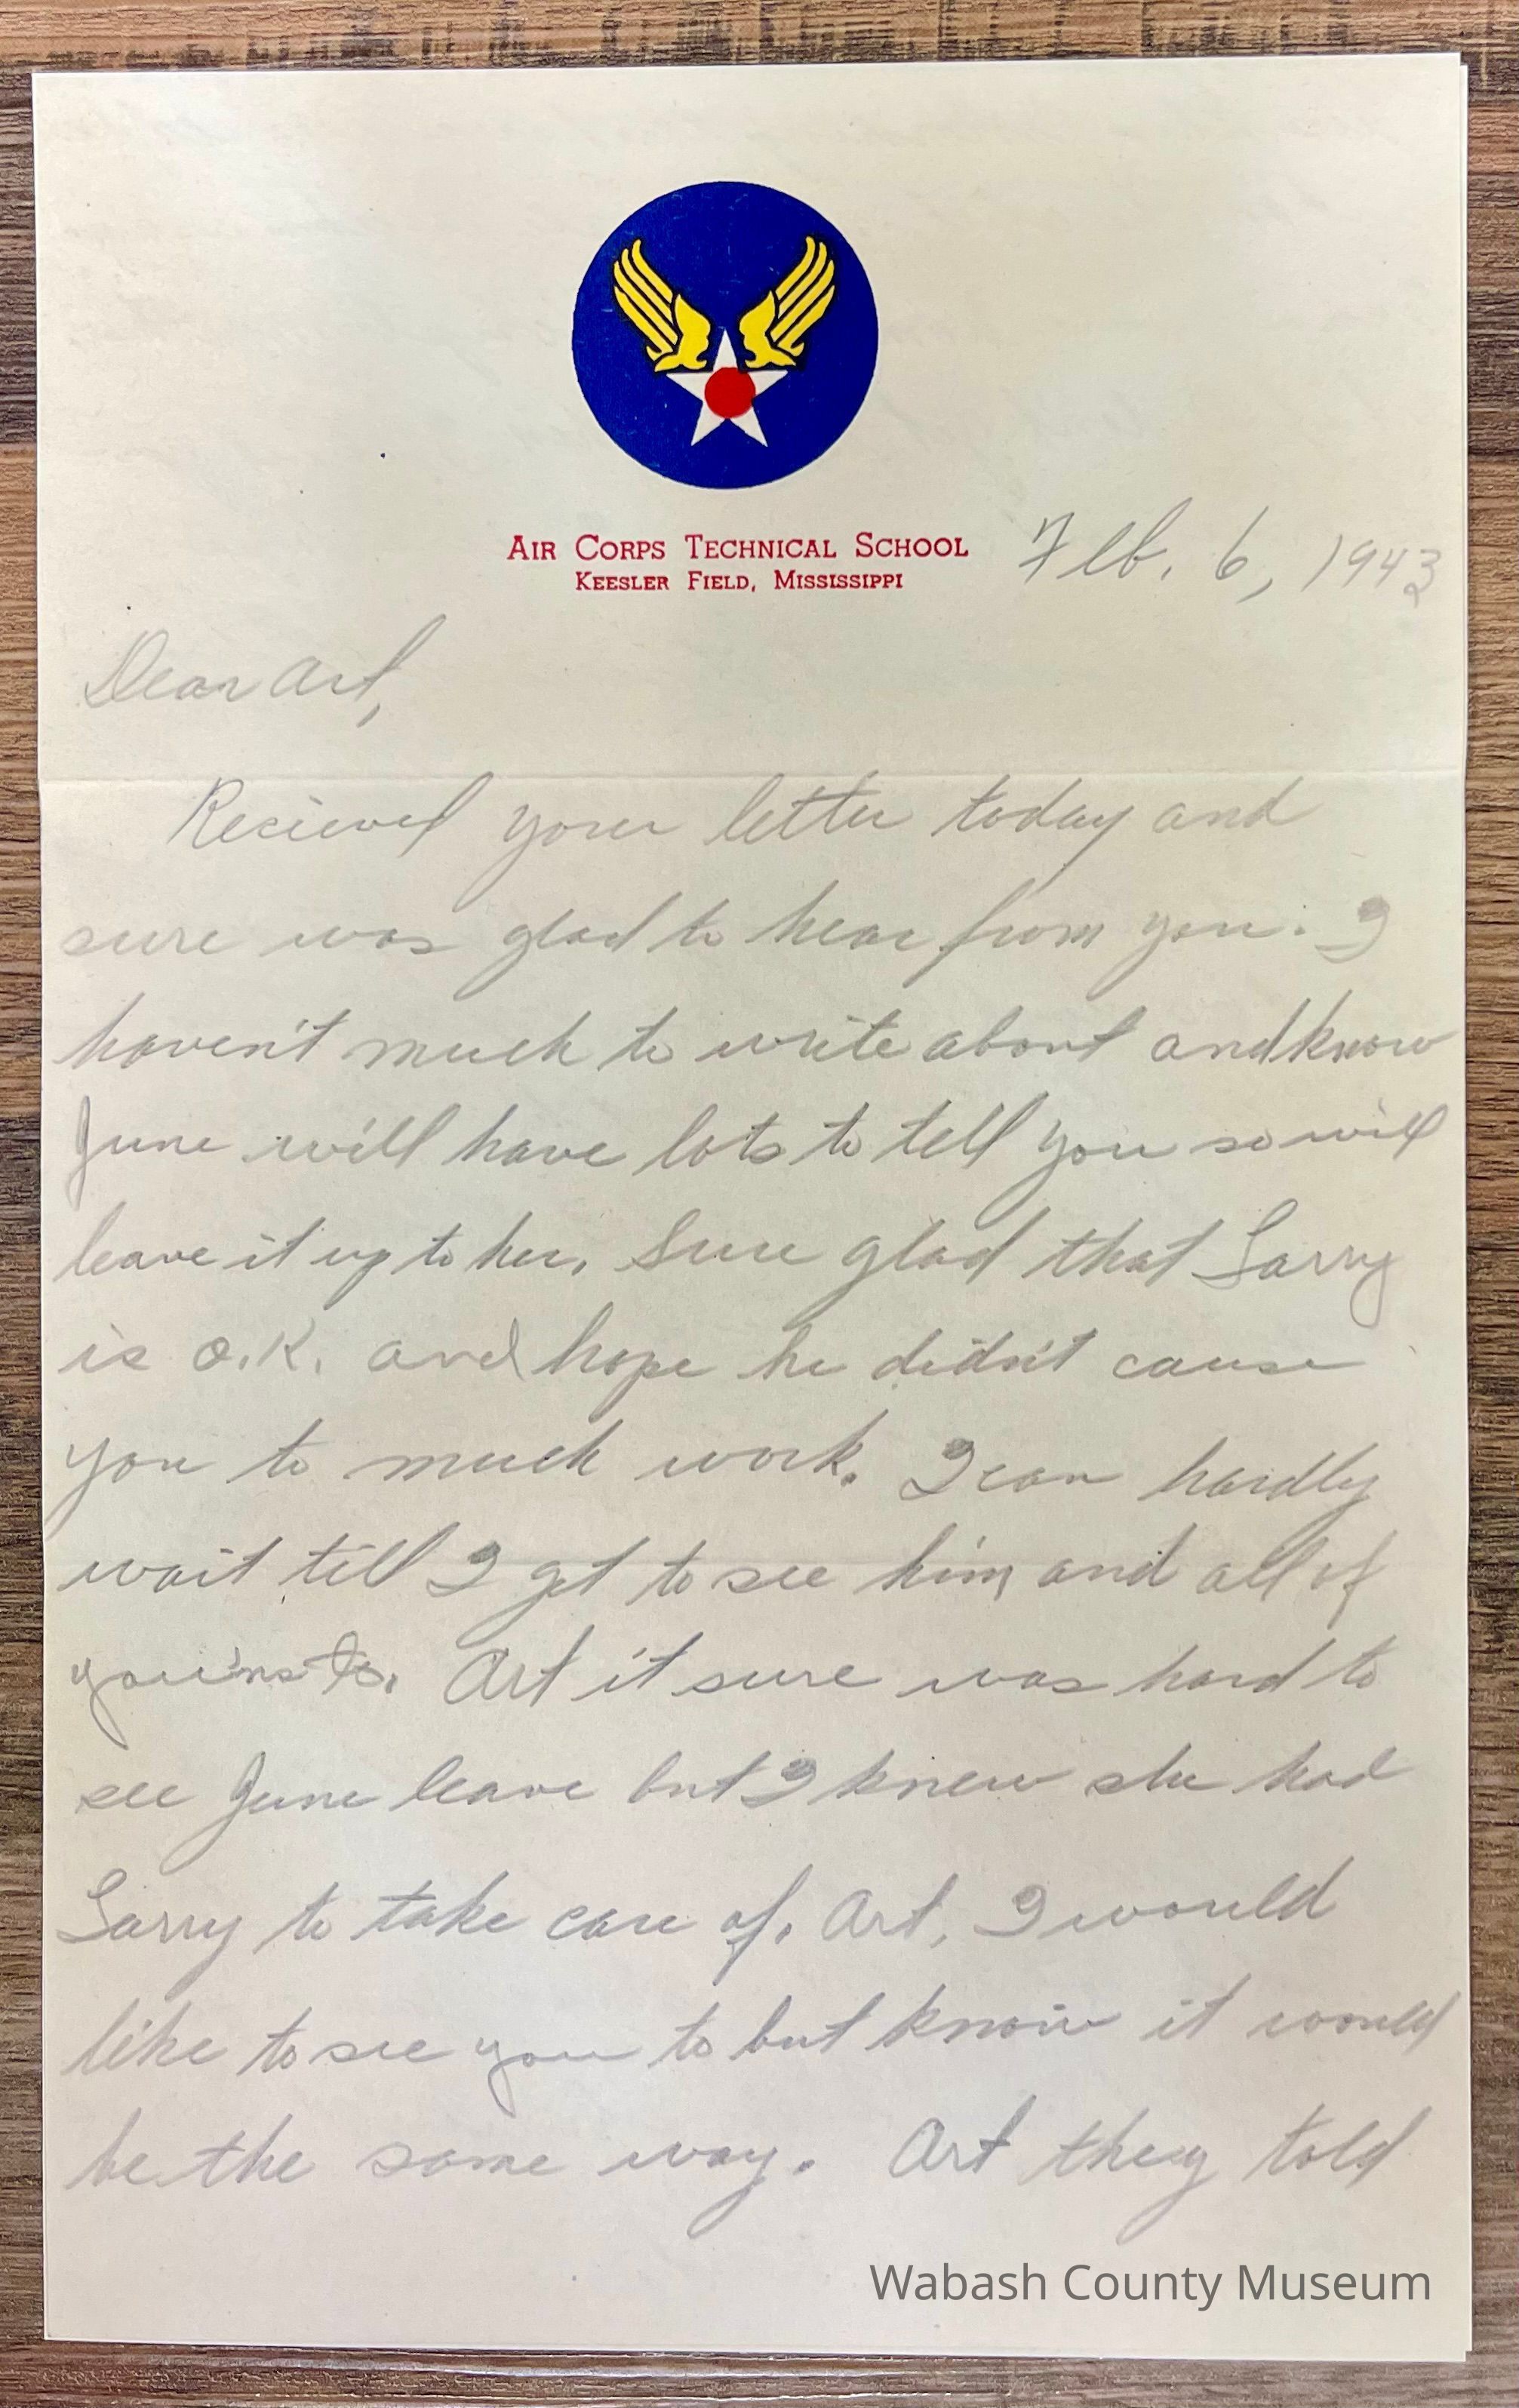 AIR CORPS TECHNICAL SCHOOL
KEESLER FIELD, MISSISSIPPI
Feb. 6, 1943
Dear Art,
Recieved your letter today and
sure was glad to hear from you. I
haven't much to write about and know
June will have lots to tell you so will
leave it up to her. Sure glad that Larry
is O.K. and hope he didn't cause
you to much work. I can hardly
wait till I get to see him and all of
you'ns to. Art it sure was hard to
see June leave but I knew she had
Larry to take care of. Art, I would
like to see you to but know it would
be the same way. Art they told
Wabash County Museum